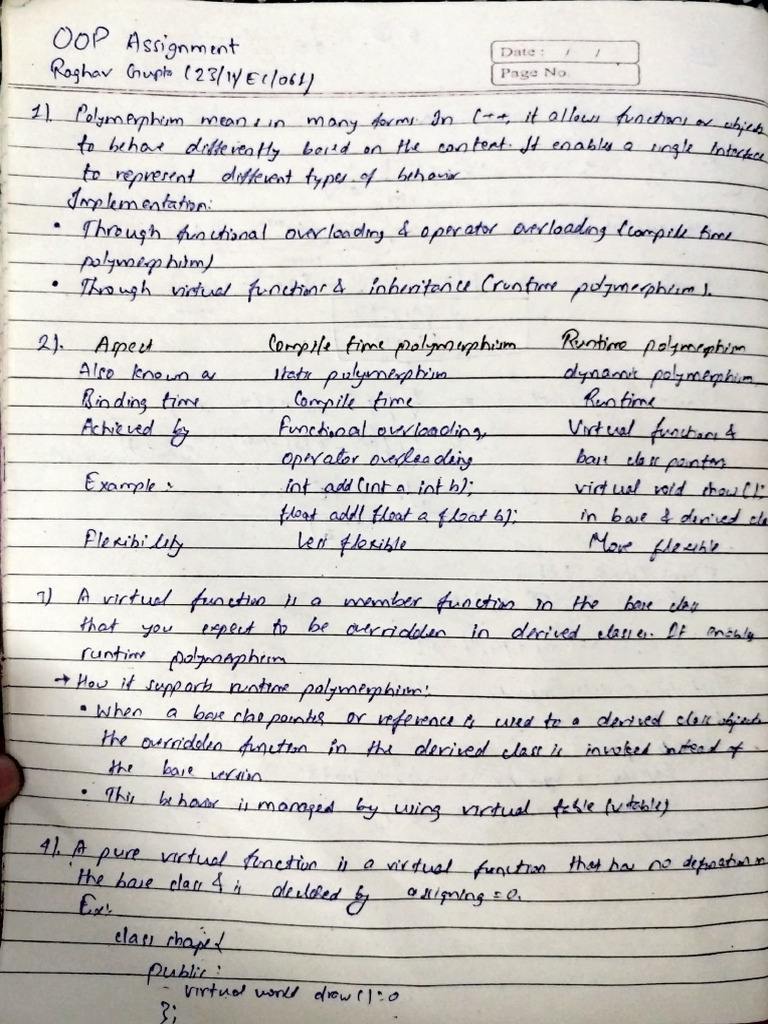 OOP Assignment
Raghav Gupta (23/11/EC/061)
Date : / /
Page No.
1). Polymorphism means in many forms. In C++, it allows functions or objects
to behave differently based on the context. It enables a single interface
to represent different types of behavior
Implementation:
• Through functional overloading & operator overloading (compile time
polymorphism)
• Through virtual functions & inheritance (runtime polymorphism).
2). Aspect Compile time polymorphism Runtime polymorphism
Also known as static polymorphism dynamic polymorphism
Binding time Compile time Runtime
Achieved by Functional overloading, Virtual functions &
operator overloading base class pointers
Example: int add(int a, int b); virtual void show();
float add(float a float b); in base & derived cla
Flexibility Less flexible More flexible
3) A virtual function is a member function in the base class
that you expect to be overridden in derived classes. It enables
runtime polymorphism
→ How it supports runtime polymorphism:
• When a base class pointer or reference is used to a derived class objects
the overridden function in the derived class is invoked instead of
the base version
• This behavior is managed by using virtual table (vtable)
4). A pure virtual function is a virtual function that has no definition in
the base class & is declared by assigning = 0.
Ex:
class shape{
public:
virtual void draw()=0
};